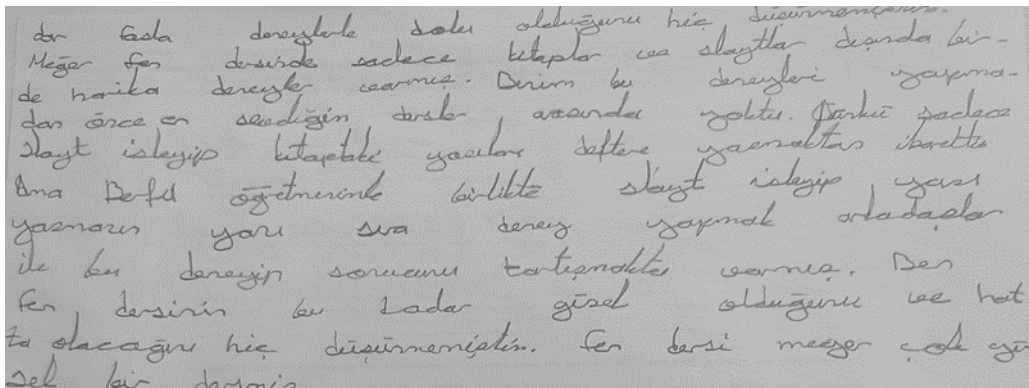 dar fazla deneylerle dolu olduğunu hiç düşünmemiştim.
Meğer fen dersinde sadece kitaplar ve slaytlar dışında bir-
de harika deneyler varmış. Benim bu deneyleri yapma-
dan önce en sevdiğim dersler arasında yoktu. Çünkü sadece
slayt izleyip kitaptaki yazıları deftere yazmaktan ibaretti
Ama öğretmenimle birlikte slayt izleyip yazı
yazmanın yanı sıra deney yapmak arkadaşlar
ile bu deneyin sonucunu tartışmakta varmış. Ben
fen dersinin bu kadar güzel olduğunu ve hat
ta olacağını hiç düşünmemiştim. Fen dersi meğer çok gü
zel bir dersmiş